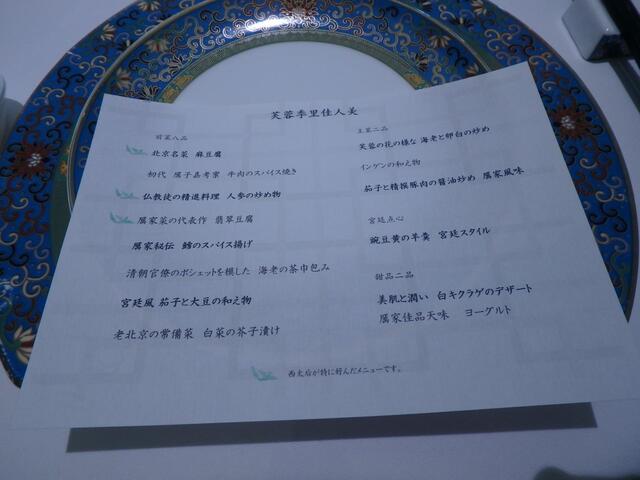 芙蓉季里佳人美
前菜八品
北京名菜 麻豆腐
初代 厲子嘉考案 牛肉のスパイス焼き
仏教徒の精進料理 人参の炒め物
厲家菜の代表作 翡翠豆腐
厲家秘伝 鱈のスパイス揚げ
清朝官僚のポシェットを模した 海老の茶巾包み
宮廷風 茄子と大豆の和え物
老北京の常備菜 白菜の芥子漬け
主菜二品
芙蓉の花の様な 海老と卵白の炒め
インゲンの和え物
茄子と精撰豚肉の醤油炒め 厲家風味
宮廷点心
豌豆黄の羊羹 宮廷スタイル
甜品二品
美肌と潤い 白キクラゲのデザート
厲家佳品天味 ヨーグルト
西太后が特に好んだメニューです。